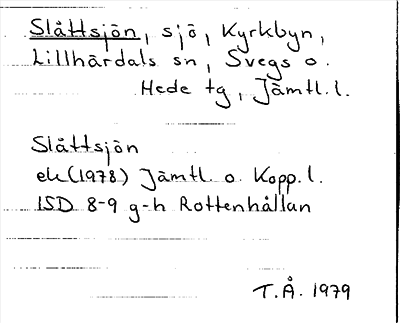 Slåttsjön, sjö, Kyrkbyn,
Lillhärdals sn, Svegs o.
Hede tg, Jämtl.l.
Slåttsjön
ek(1978) Jämtl. o. Kopp.l.
15D 8-9 g-h Rottenhållan
T.Å. 1979